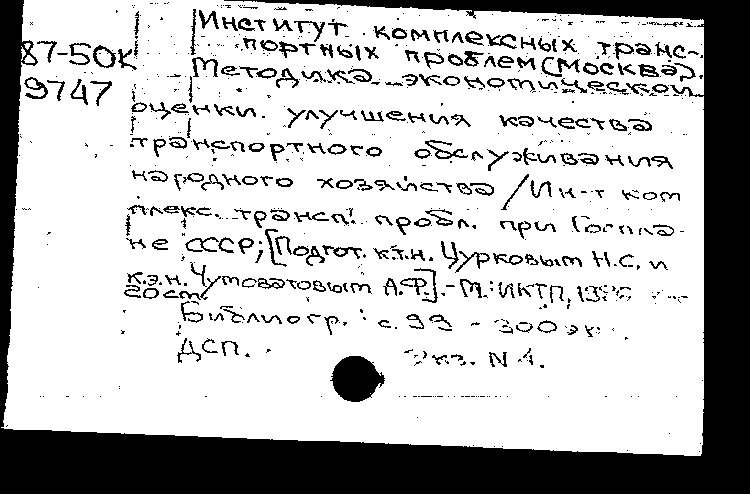 Институт комплексных транс-
портных проблем (Москва).
87-50к
9747
Методика экономической
оценки улучшения качества
транспортного обслуживания
народного хозяйства / Ин-т ком
плекс. трансп. пробл. при Госпла-
не СССР; [Подгот. к.т.н. Цурковым Н.С. и
к.э.н. Чумоватовым А.Ф.]. - М.: ИКТП,
20 см.
Библиогр.: с. 99 - 300 эк
ДСП. Экз. N 4.